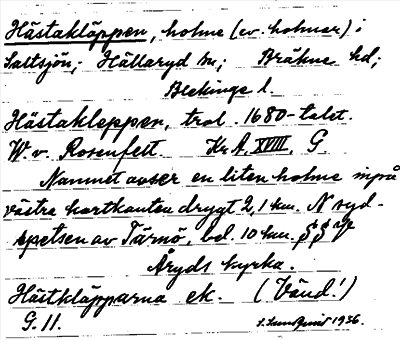 Hästakläppen, holme (ev. holmar) i
Saltsjön; Hällaryd sn; Bräkne hd;
Blekinge l.
Hästakleppen, trol. 1680-talet.
W. v. Rosenfelt. Kr A, XVIII, G
Namnet avser en liten holme inpå
västra kartkanten drygt 2,1 km. N syd-
spetsen av Tärnö, bel. 10 km. SSO
Åryds kyrka.
Hästkläpparna ek. (Vänd!)
G. 11. 1936.